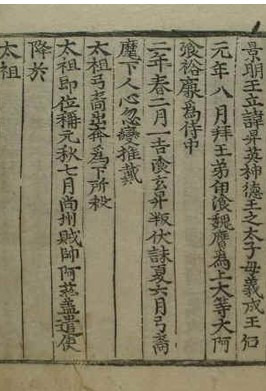 景明王立諱昇英神德王之太子母義成王后
元年八月拜王弟伊飡魏膺爲上大等大阿
飡裕廉爲侍中
二年春二月一吉飡玄昇叛伏誅夏六月弓裔
麾下人心忽變推戴
太祖弓裔出奔爲下所殺
太祖即位稱元秋七月尚州賊帥阿玆盖遣使
降於
太祖